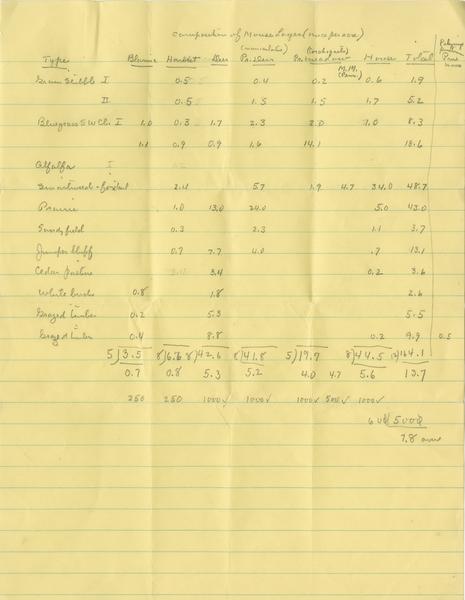 Composition of Mouse Layer (mice per acre)
Type Blarina Harvest Deer (maniculatus) Pr. Deer (Ps. ochrogaster) Pr. Meadow M.M. (Penn.) House Total
I 0.5 0.4 0.2 0.6 1.9
II 0.5 1.5 1.5 1.7 5.2
Bluegrass I 1.0 0.3 1.7 2.3 2.0 1.0 8.3
1.1 0.9 0.9 1.6 14.1 18.6
Alfalfa I
Smartweed - foxtail 2.4 5.7 1.9 4.7 34.0 48.7
Prairie 1.0 13.0 24.0 5.0 43.0
Sandy field 0.3 2.3 1.1 3.7
Juniper bluff 0.7 7.7 4.0 .7 13.1
Cedar pasture 3.4 0.2 3.6
White birch 0.8 1.8 2.6
Grazed timber 0.2 5.3 5.5
Grazed timber 0.4 8.8 0.2 9.9 0.5
5)3.5 8)6.6 8)42.6 8)41.8 5)19.7 8)44.5 12)164.1
0.7 0.8 5.3 5.2 4.0 4.7 5.6 13.7
250 250 1000✓ 1000✓ 1000✓ 500✓ 1000✓
5000
7.8